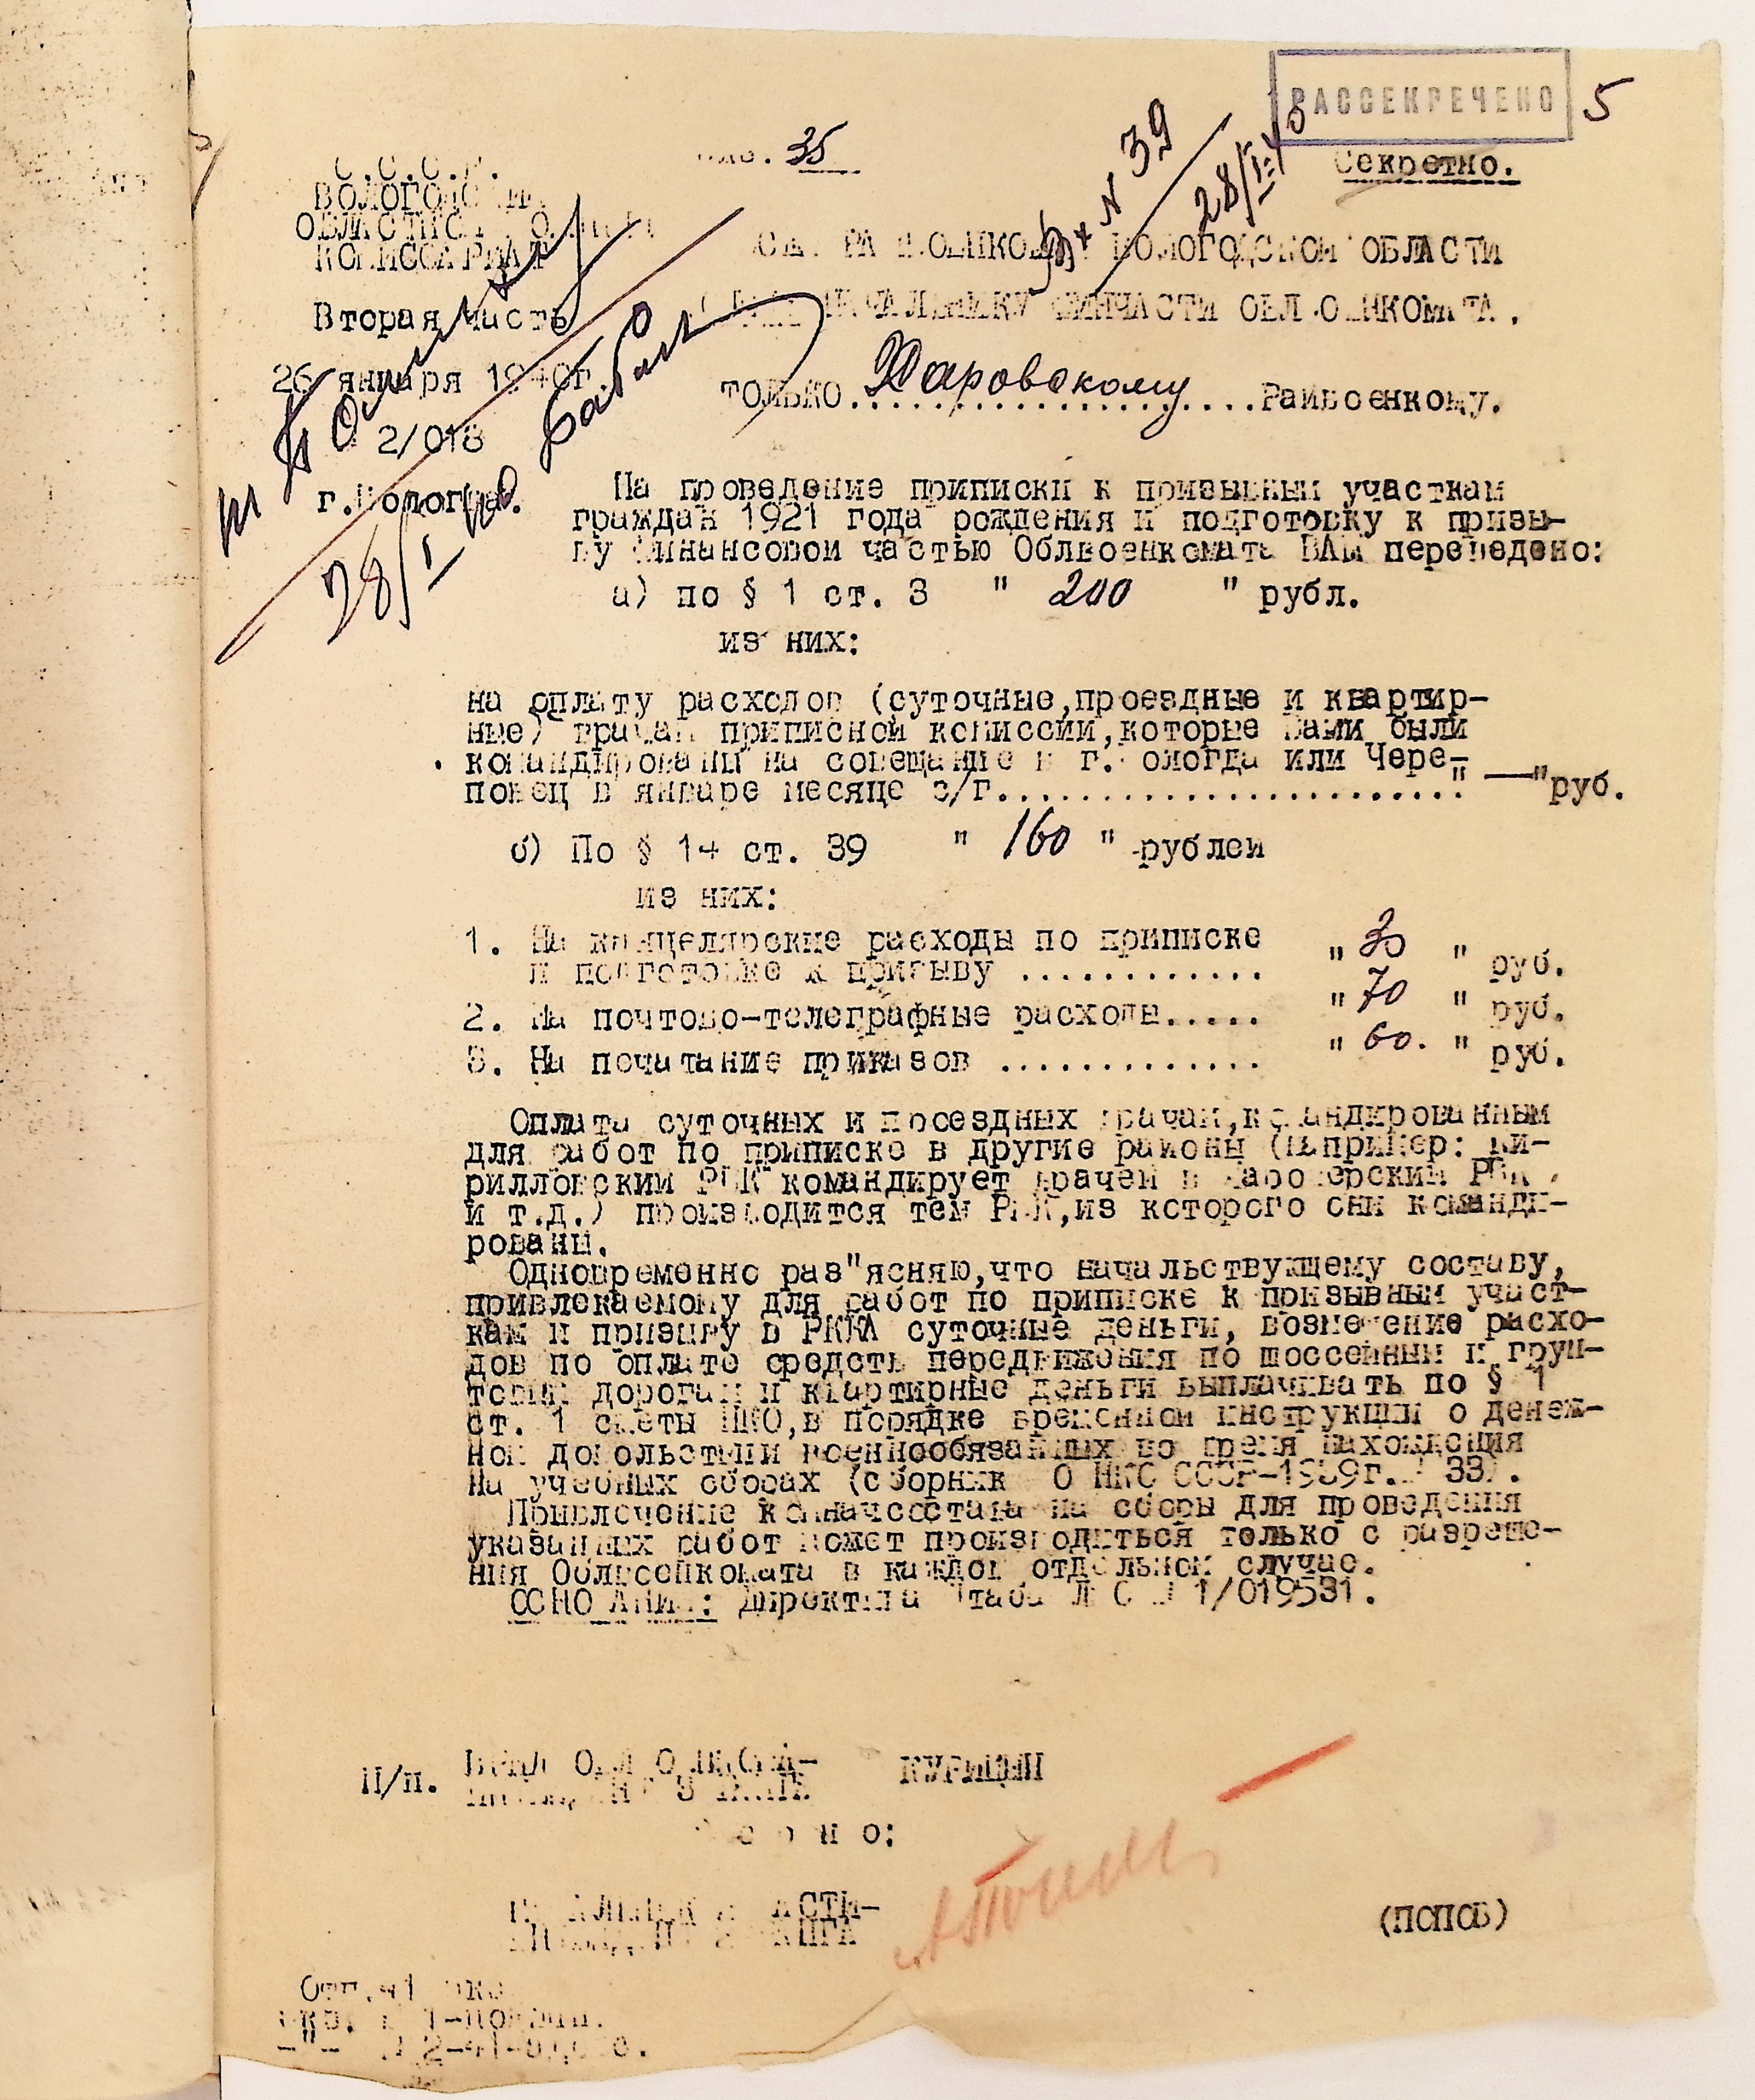 РАССЕКРЕЧЕНО
5
35
Вх N 39
28/I-40
Секретно.
С.С.С.Р.
ВОЛОГОДСКИЙ
ОБЛАСТНОЙ
КОМИССАРИАТ
Вторая часть
26 января 1940г.
2/018
г.Вологда.
28/I 40
ВОЛОГОДСКОЙ ОБЛАСТИ
НАЧАЛЬНИКУ ФИНЧАСТИ ОБЛВОЕНКОМАТА.
ТОЛЬКО Харовскому Райвоенкому.
На проведение приписки к призывным участкам
граждан 1921 года рождения и подготовку к призы-
ву финансовой частью Облвоенкомата ВАМ переведено:
а) по § 1 ст. 3 " 200 " рубл.
из них:
на оплату расходов (суточные,проездные и квартир-
ные) врачам приписной комиссии,которые Вами были
командированы на совещание в г.Вологда или Чере-
повец в январе месяце с/г........................" — "руб.
б) По § 14 ст. 39 " 160 " рублей
из них:
1. На канцелярские расходы по приписке
и подготовке к призыву ............ " 30 " руб.
2. На почтово-телеграфные расходы..... " 70 " руб.
3. На печатание приказов ............. " 60. " руб.
Оплата суточных и проездных врачам,командированным
для работ по приписке в другие районы (например: Ки-
рилловский РВК командирует врачей в РВК
и т.д.) производится тем РВК,из которого они команди-
рованы.
Одновременно раз"ясняю,что начальствующему составу,
привлекаемому для работ по приписке к призывным участ-
кам и призыву в РККА суточные деньги, возмещение расхо-
дов по оплате средств передвижения по шоссейным и грун-
товым дорогам и квартирные деньги выплачивать по § 1
ст. 1 сметы НКО,в порядке временной инструкции о денеж-
ном довольствии военнообязанных во время нахождения
на учебных сборах (сборник НКО СССР-1939г. 33).
Привлечение комначсостава на сборы для проведения
указанных работ может производиться только с разреше-
ния Облвоенкомата в каждом отдельном случае.
ОСНОВАНИЕ: Директива Штаба 1/019531.
П/п.
КУРИЦЫН
Верно:
(ПОПОВ)